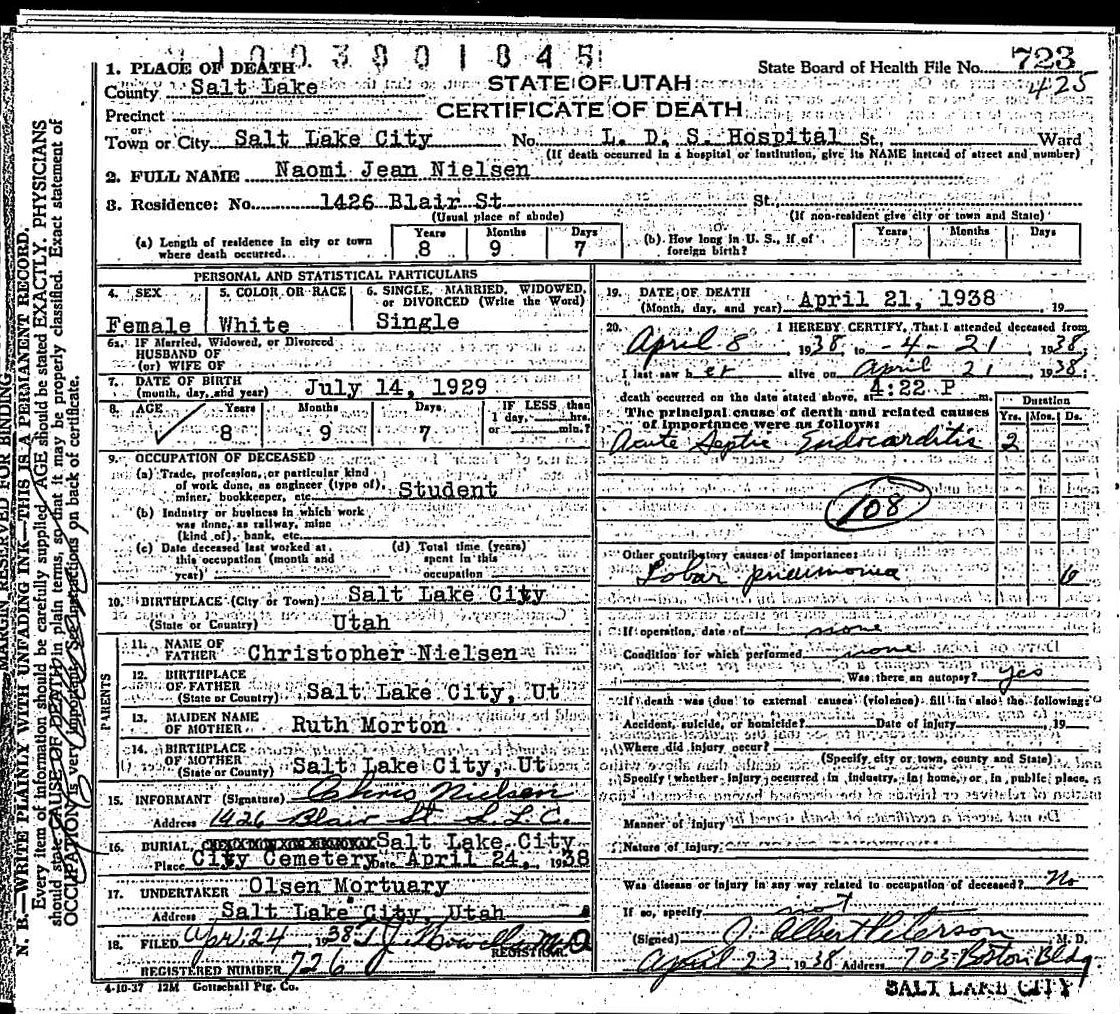 1003801845
1. PLACE OF DEATH
County Salt Lake
STATE OF UTAH
State Board of Health File No. 723
425
Precinct
CERTIFICATE OF DEATH
or
Town or City Salt Lake City No. L. D. S. Hospital St., Ward
(If death occurred in a hospital or institution, give its NAME instead of street and number)
2. FULL NAME Naomi Jean Nielsen
3. Residence: No. 1426 Blair St St.,
(Usual place of abode) (If non-resident give city or town and State)
(a) Length of residence in city or town where death occurred. Years 8 Months 9 Days 7
(b) How long in U. S., if of foreign birth? Years Months Days
PERSONAL AND STATISTICAL PARTICULARS
4. SEX
Female
5. COLOR OR RACE
White
6. SINGLE, MARRIED, WIDOWED, or DIVORCED (Write the Word)
Single
6a. IF Married, Widowed, or Divorced
HUSBAND OF
(or) WIFE OF
7. DATE OF BIRTH
(month, day, and year) July 14, 1929
8. AGE Years 8 Months 9 Days 7
IF LESS than
1 day, hrs.
or min.?
9. OCCUPATION OF DECEASED
(a) Trade, profession, or particular kind
of work done, as engineer (type of),
miner, bookkeeper, etc. Student
(b) Industry or business in which work
was done, as railway, mine
(kind of), bank, etc.
(c) Date deceased last worked at
this occupation (month and
year)
(d) Total time (years)
spent in this
occupation
10. BIRTHPLACE (City or Town) Salt Lake City
(State or Country) Utah
PARENTS
11. NAME OF
FATHER Christopher Nielsen
12. BIRTHPLACE
OF FATHER
(State or Country) Salt Lake City, Ut
13. MAIDEN NAME
OF MOTHER Ruth Morton
14. BIRTHPLACE
OF MOTHER
(State or Country) Salt Lake City, Ut
15. INFORMANT (Signature) Chris Nielsen
Address 1426 Blair St S.L.C.
16. BURIAL, Salt Lake City
Place City Cemetery Date April 24, 1938
17. UNDERTAKER Olsen Mortuary
Address Salt Lake City, Utah
18. FILED Apr. 24, 1938 T J Howells M.D
REGISTRAR
REGISTERED NUMBER 726
4-10-37 12M Gottschall Ptg. Co.
19. DATE OF DEATH
(Month, day, and year) April 21, 1938 19
20. I HEREBY CERTIFY, That I attended deceased from
April 8, 1938, to -4-21, 1938.
I last saw her alive on April 21 1938:
death occurred on the date stated above, at 4:22 P m.
The principal cause of death and related causes
of importance were as follows:
Duration
Yrs. Mos. Ds.
Acute Septic Endocarditis 2
108
Other contributory causes of importance:
Lobar pneumonia 6
If operation, date of none
Condition for which performed none
Was there an autopsy? yes
If death was due to external causes (violence) fill in also the following:
Accident, suicide, or homicide? Date of injury 19
Where did injury occur?
(Specify city or town, county and State)
Specify whether injury occurred in industry, in home, or in public place.
Manner of injury
Nature of injury
Was disease or injury in any way related to occupation of deceased? No
If so, specify not
(Signed) J. Albert Peterson M. D.
April 23 1938 Address 703 Boston Bldg.
SALT LAKE CITY
MARGIN RESERVED FOR BINDING
N. B.—WRITE PLAINLY WITH UNFADING INK—THIS IS A PERMANENT RECORD.
Every item of information should be carefully supplied. AGE should be stated EXACTLY. PHYSICIANS
should state CAUSE OF DEATH in plain terms, so that it may be properly classified. Exact statement of
OCCUPATION is very important. See instructions on back of certificate.